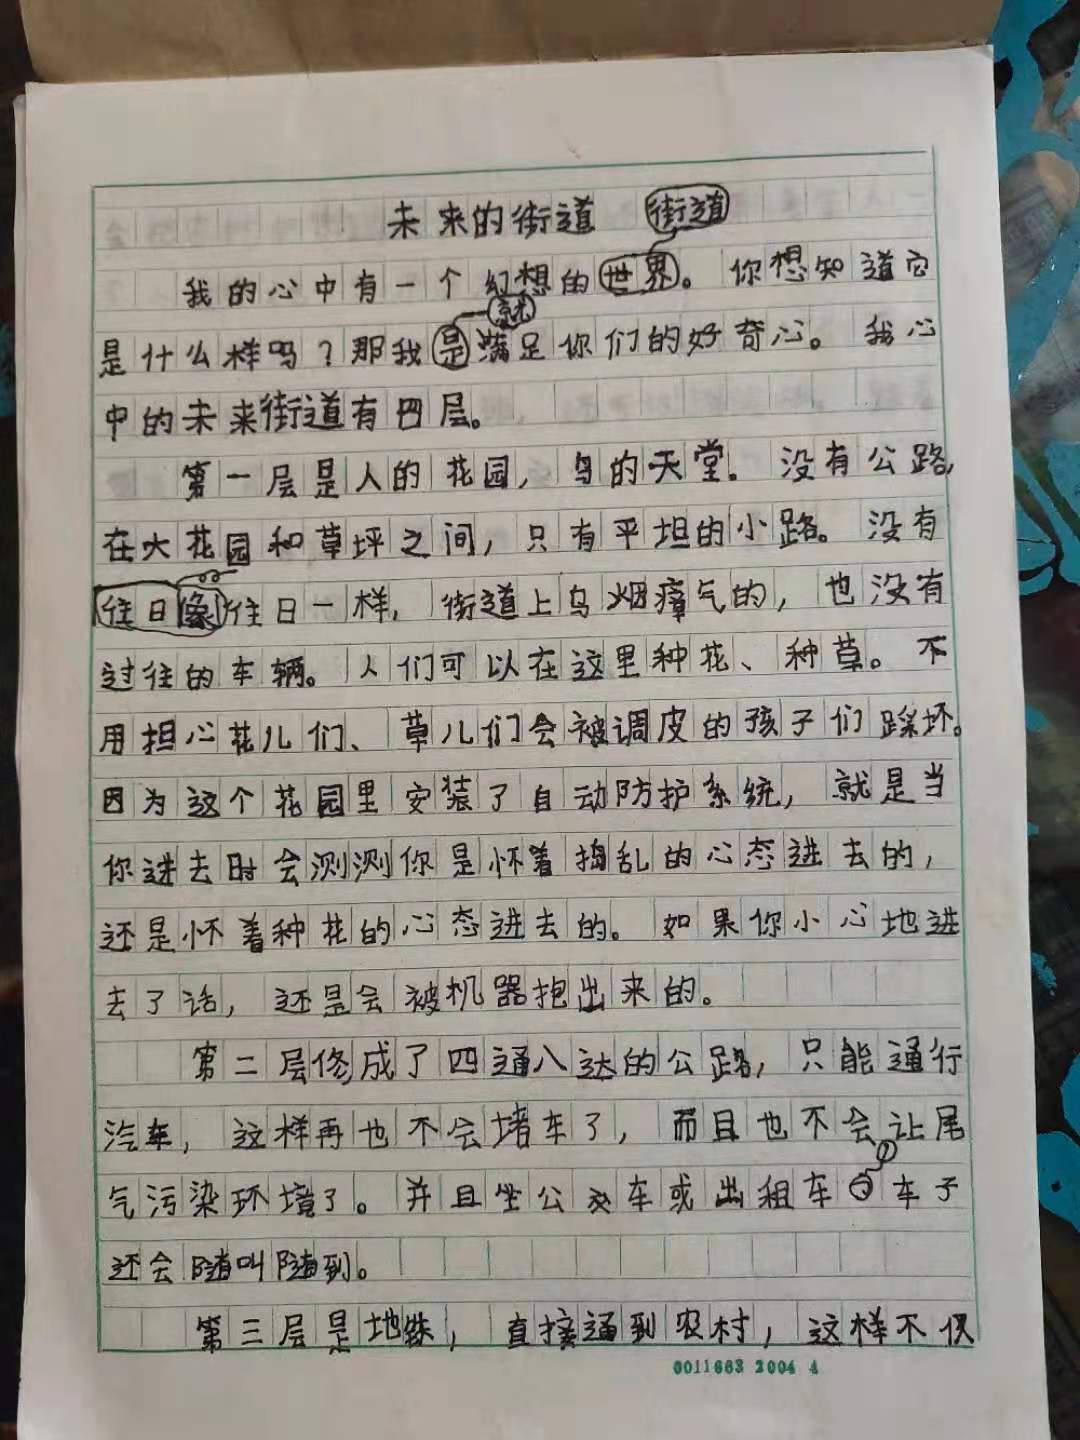 未来的街道 街道
我的心中有一个幻想的世界。你想知道它
就
是什么样吗？那我是满足你们的好奇心。我心
中的未来街道有四层。
第一层是人的花园，鸟的天堂。没有公路，
在大花园和草坪之间，只有平坦的小路。没有
往日像往日一样，街道上乌烟瘴气的，也没有
过往的车辆。人们可以在这里种花、种草。不
用担心花儿们、草儿们会被调皮的孩子们踩坏。
因为这个花园里安装了自动防护系统，就是当
你进去时会测测你是怀着捣乱的心态进去的，
还是怀着种花的心态进去的。如果你小心地进
去了话，还是会被机器抱出来的。
第二层修成了四通八达的公路，只能通行
汽车，这样再也不会堵车了，而且也不会让尾
气污染环境了。并且坐公交车或出租车，车子
还会随叫随到。
第三层是地铁，直接通到农村，这样不仅
0011663 2004 4